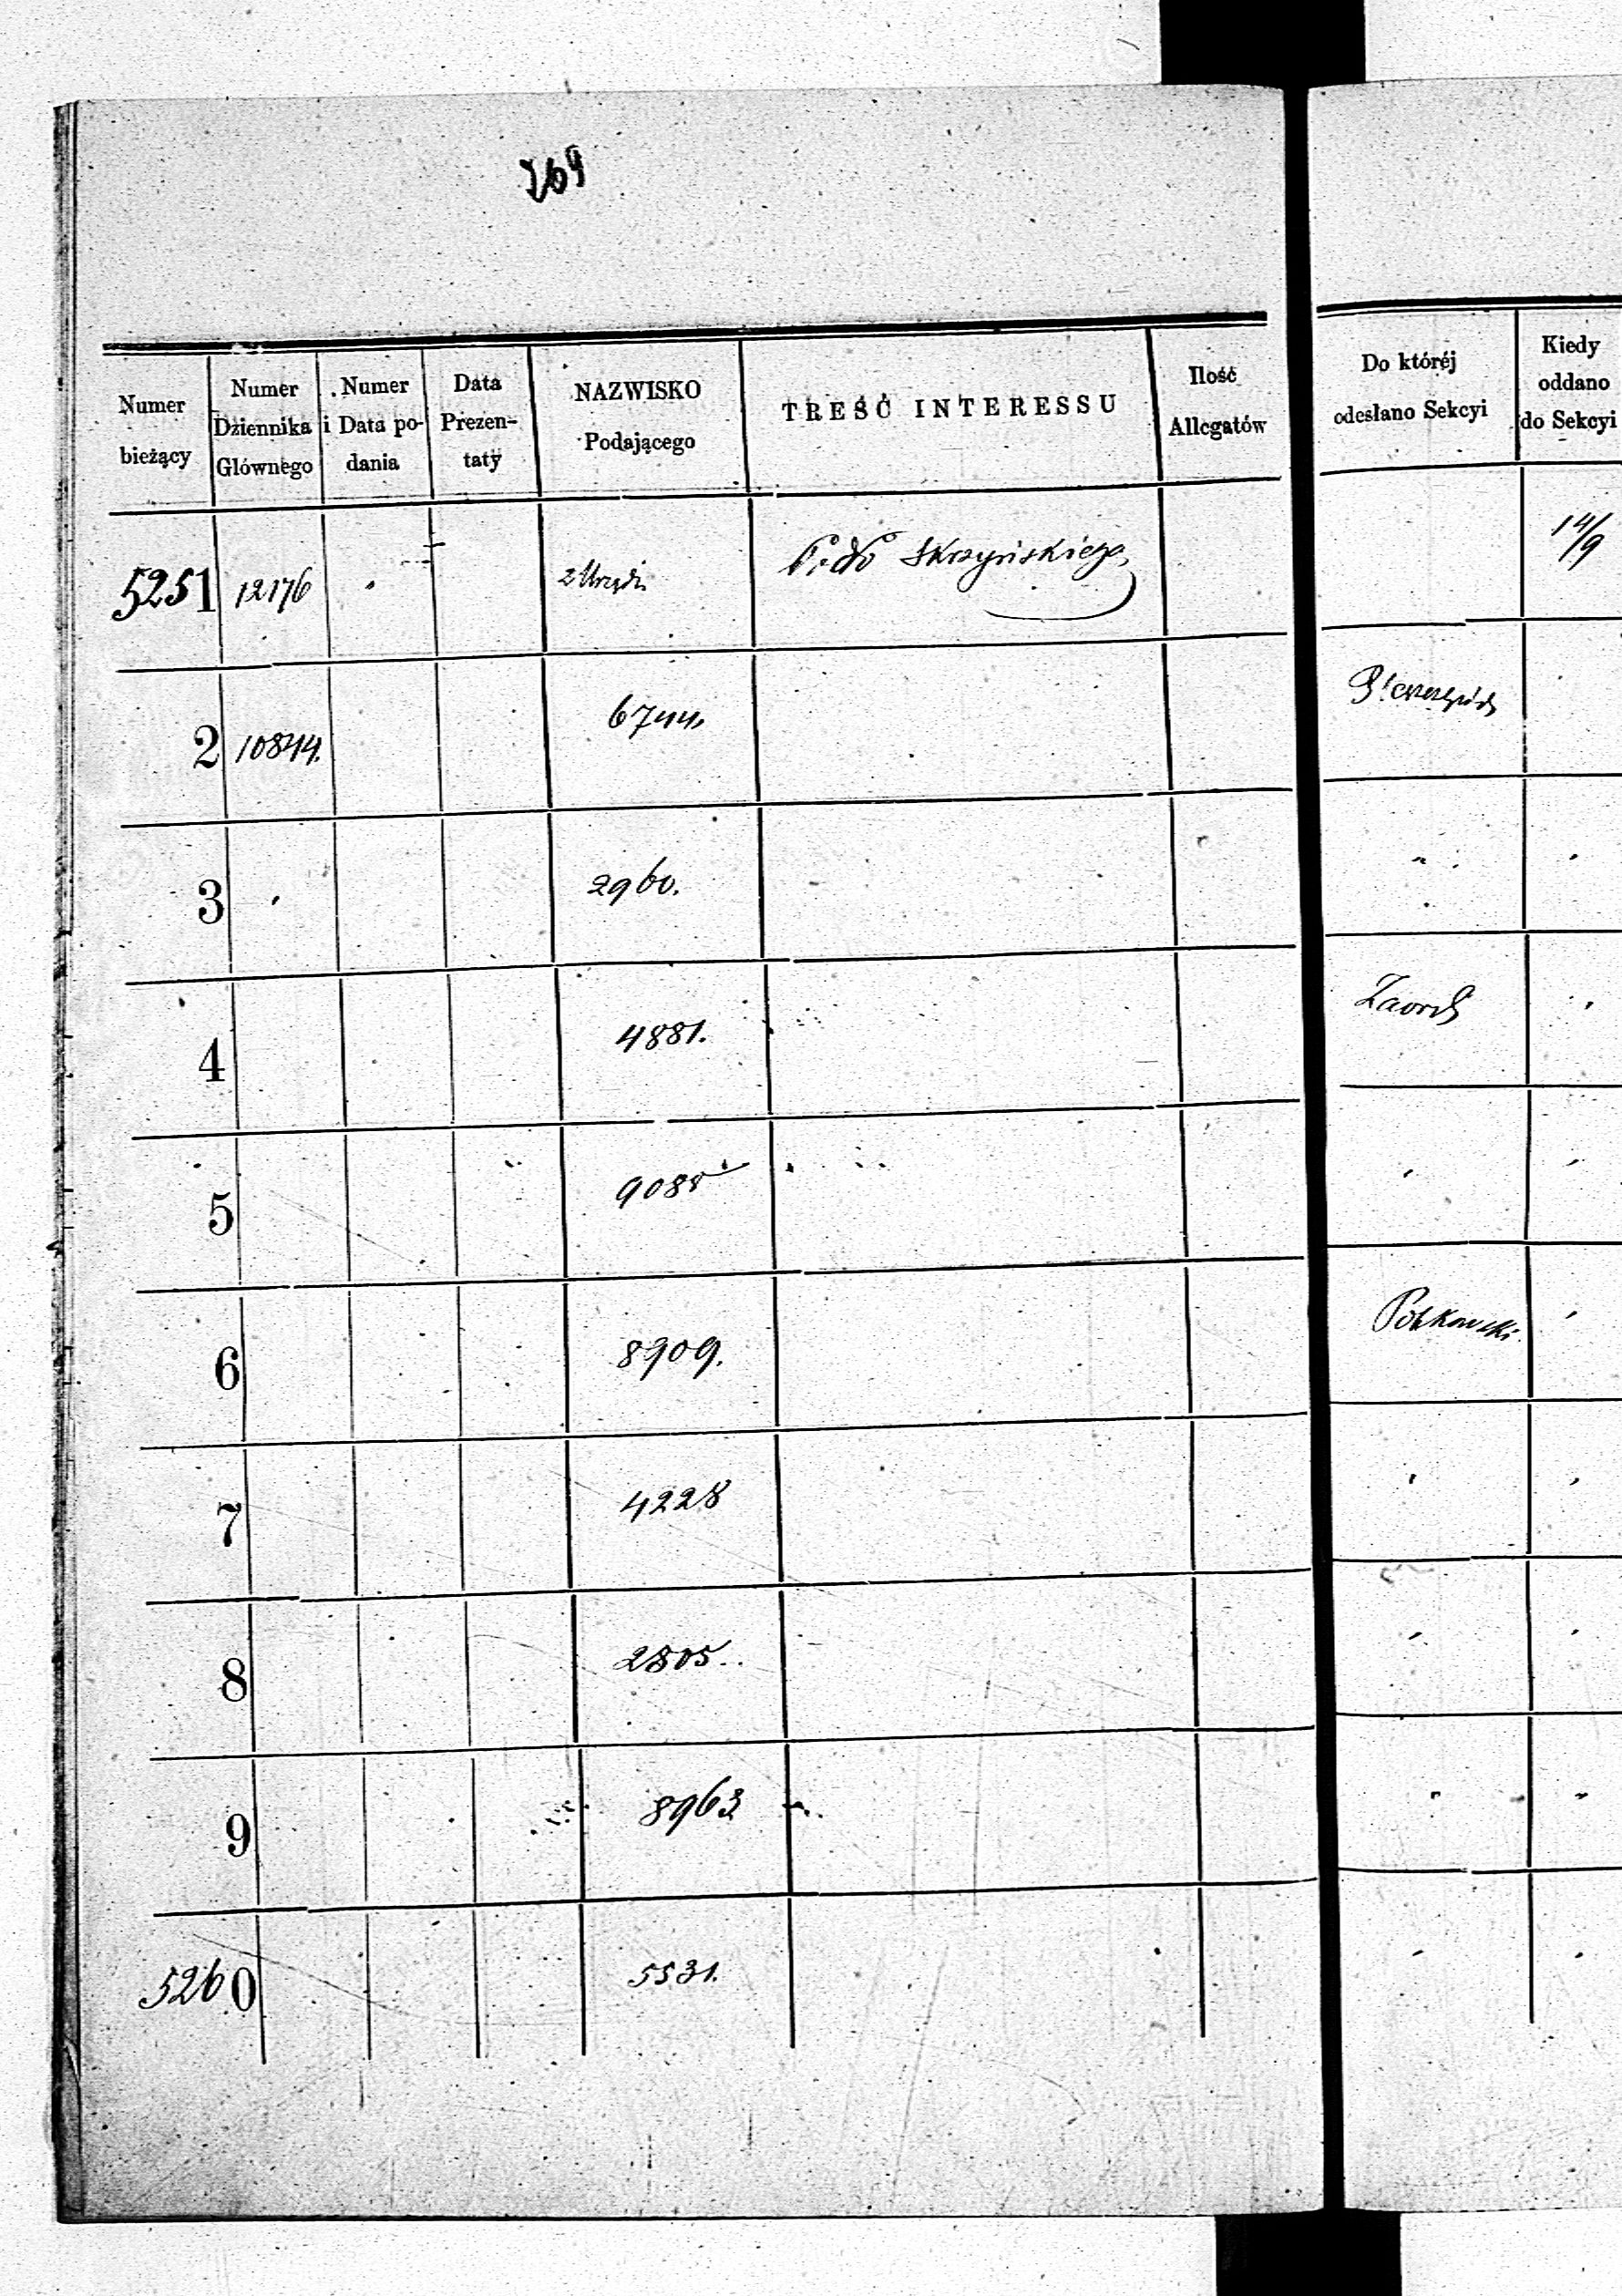 269
Numer bieżący
Numer Dziennika Głównego
Numer i Data podania
Data Prezentaty
NAZWISKO Podającego
TREŚĆ INTERESSU
Ilość Allegatów
Do któréj odesłano Sekcyi
Kiedy oddano do Sekcyi
5251 12176 z Urzędu Skrzyńskiego 14/9
2 10844. 6744.
3 2960.
4 4881.
5 9085
6 8909.
7 4228
8 2805.
9 8963
5260 5531.